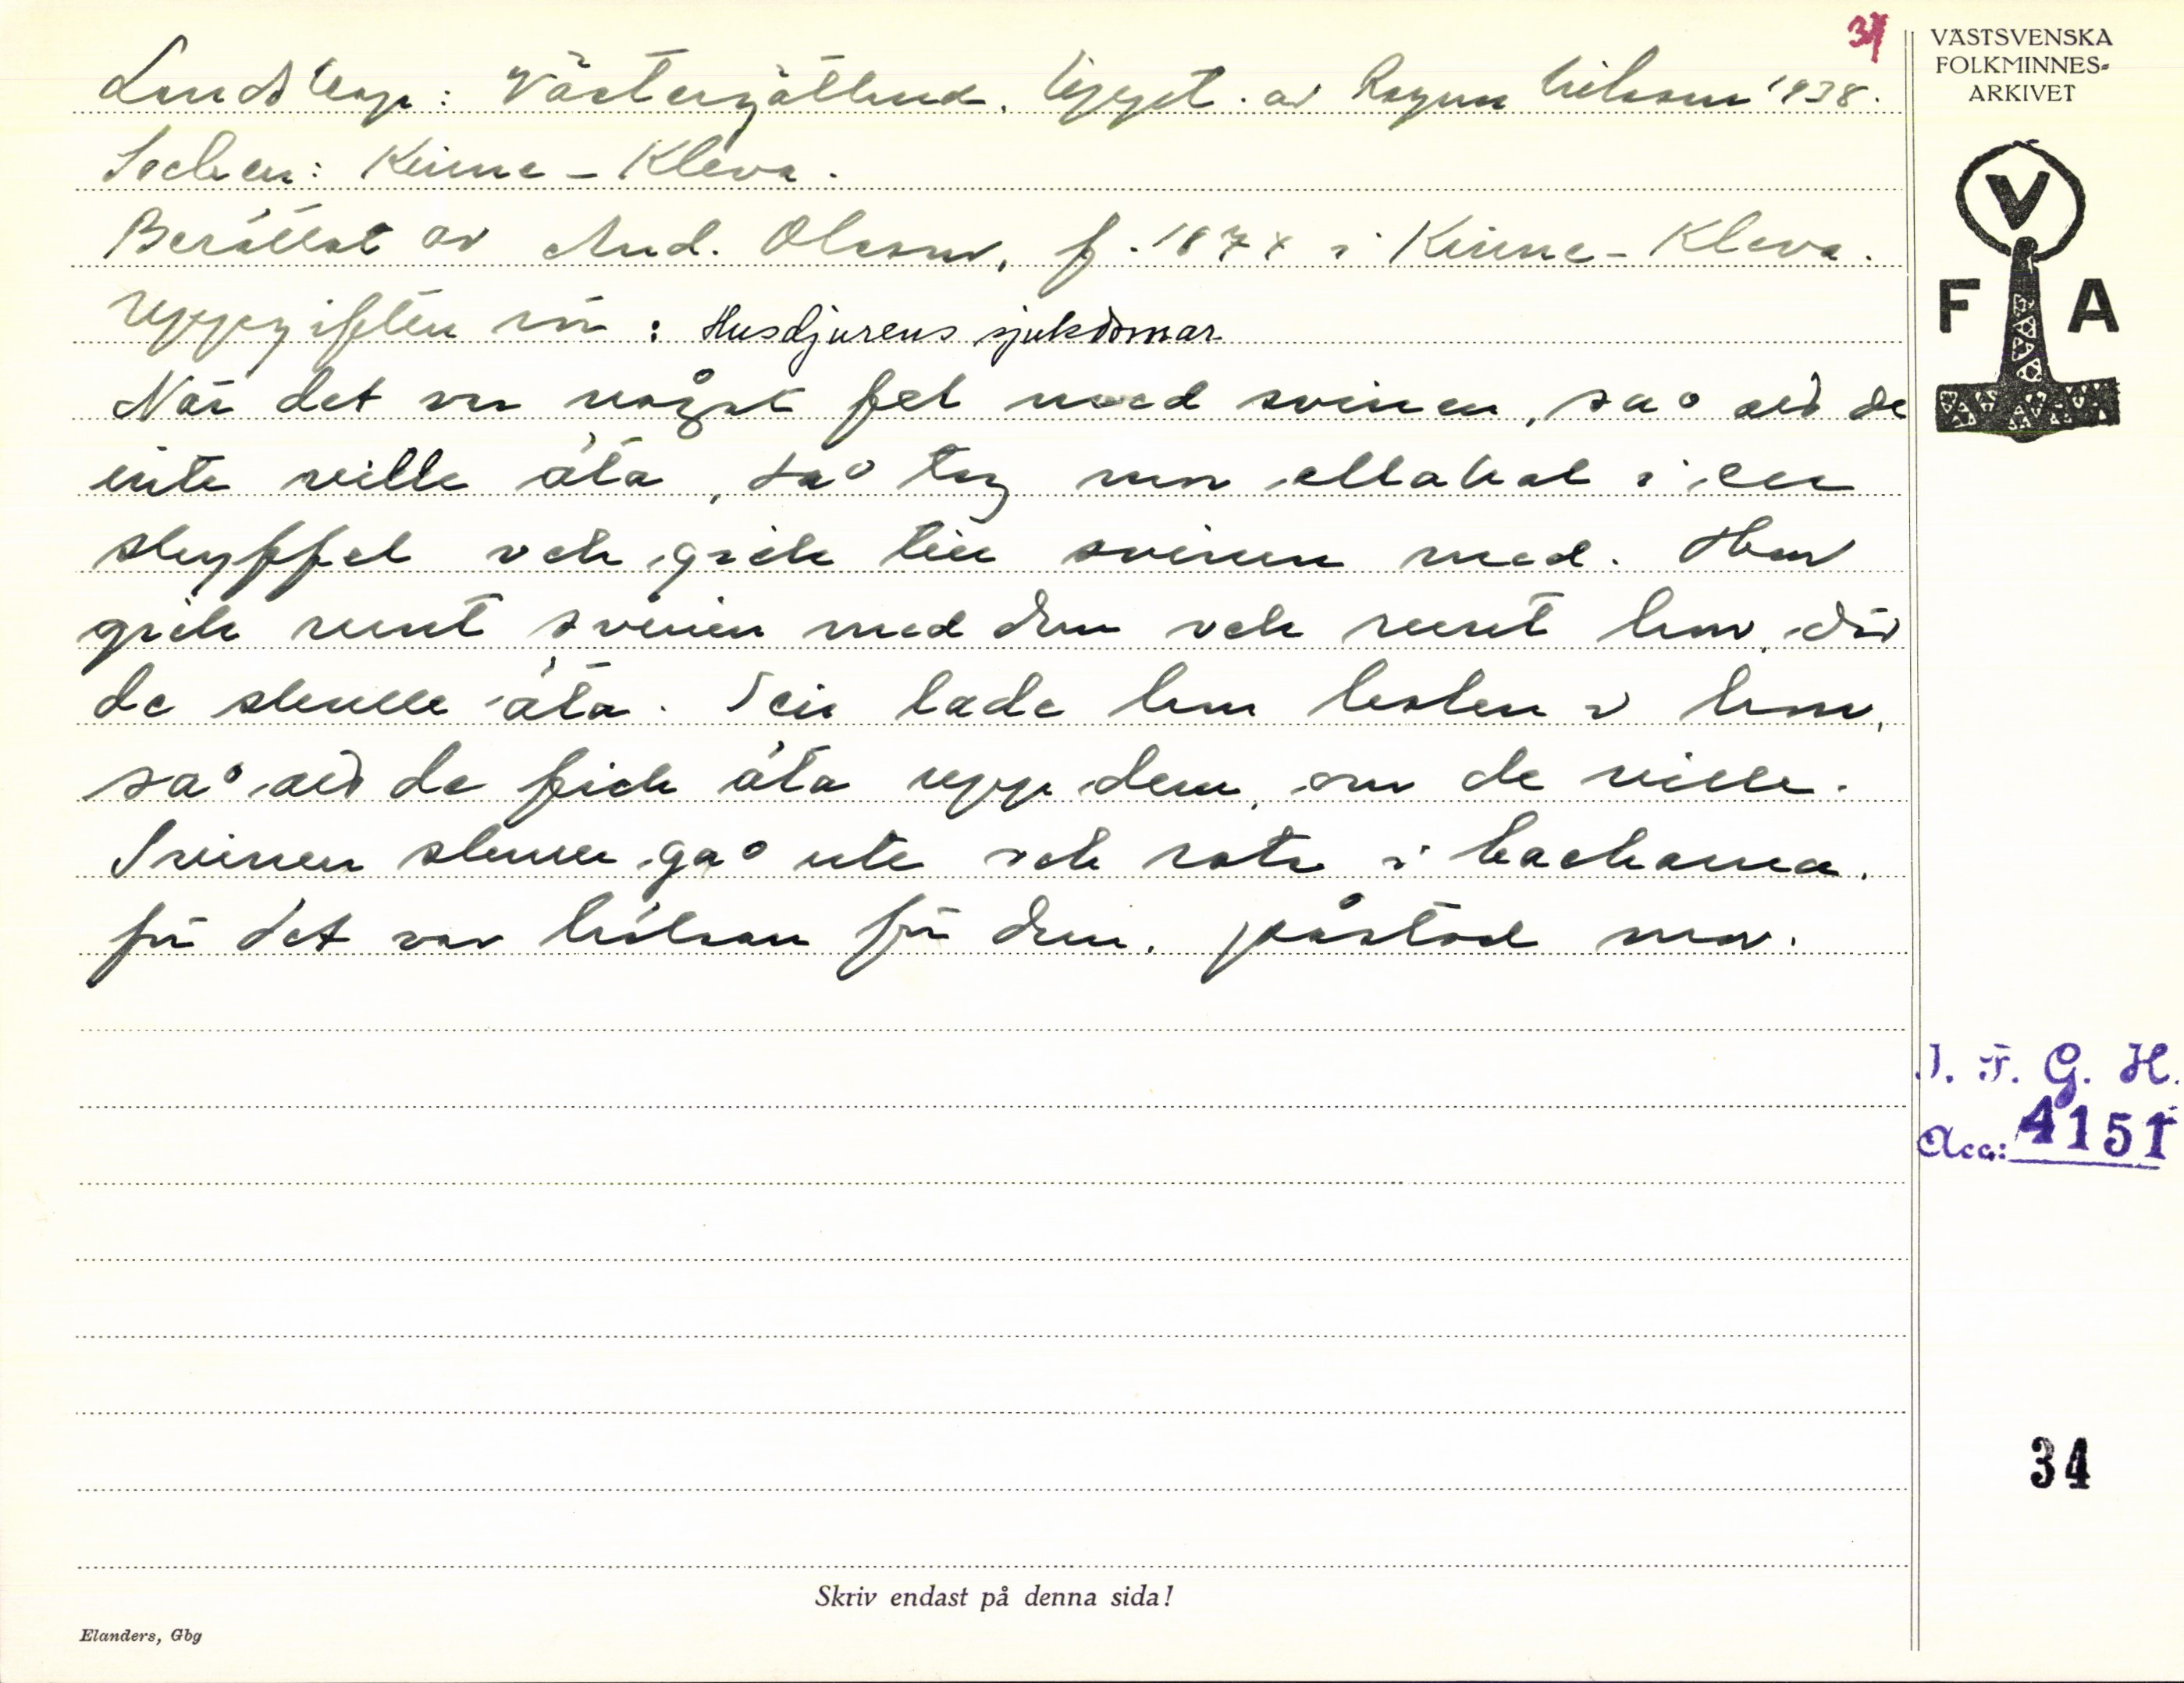 34
VÄSTSVENSKA
FOLKMINNES-
ARKIVET
Landskap: Västergötland. Uppt. av Ragnar Nilsson 1938.
Socken: Kinne-Kleva.
Berättat av And. Olsson, f. 1874 i Kinne-Kleva.
Uppgiften rör: Husdjurens sjukdomar
När det var något fel med svinen, så att de
inte ville äta, så tog man eldakol i en
skyffel och gick till svinen med. Han
gick runt svinen med dem och runt hon, där
de skulle äta. Sen lade han kolen i hon,
så att de fick äta upp dem, om de ville.
Svinen skulle gå ute och rota i backarna,
för det var hälsan för dem, påstod man.
V
F A
I. F. G. H.
Acc: 4151
34
Skriv endast på denna sida!
Elanders, Gbg